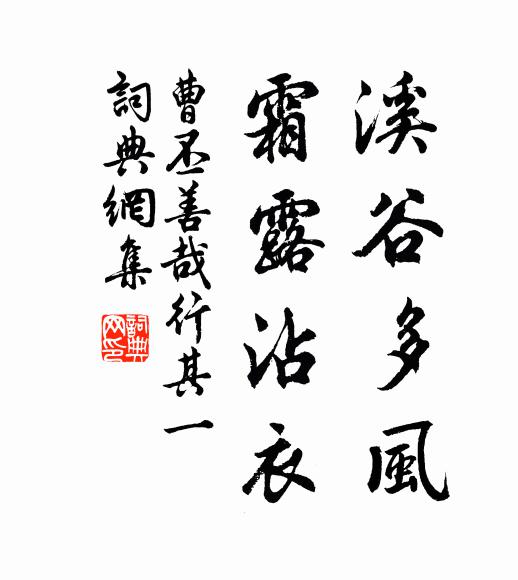 溪谷多風
霜露沾衣
曹丕善哉行其一
詞典網集
詞典网印